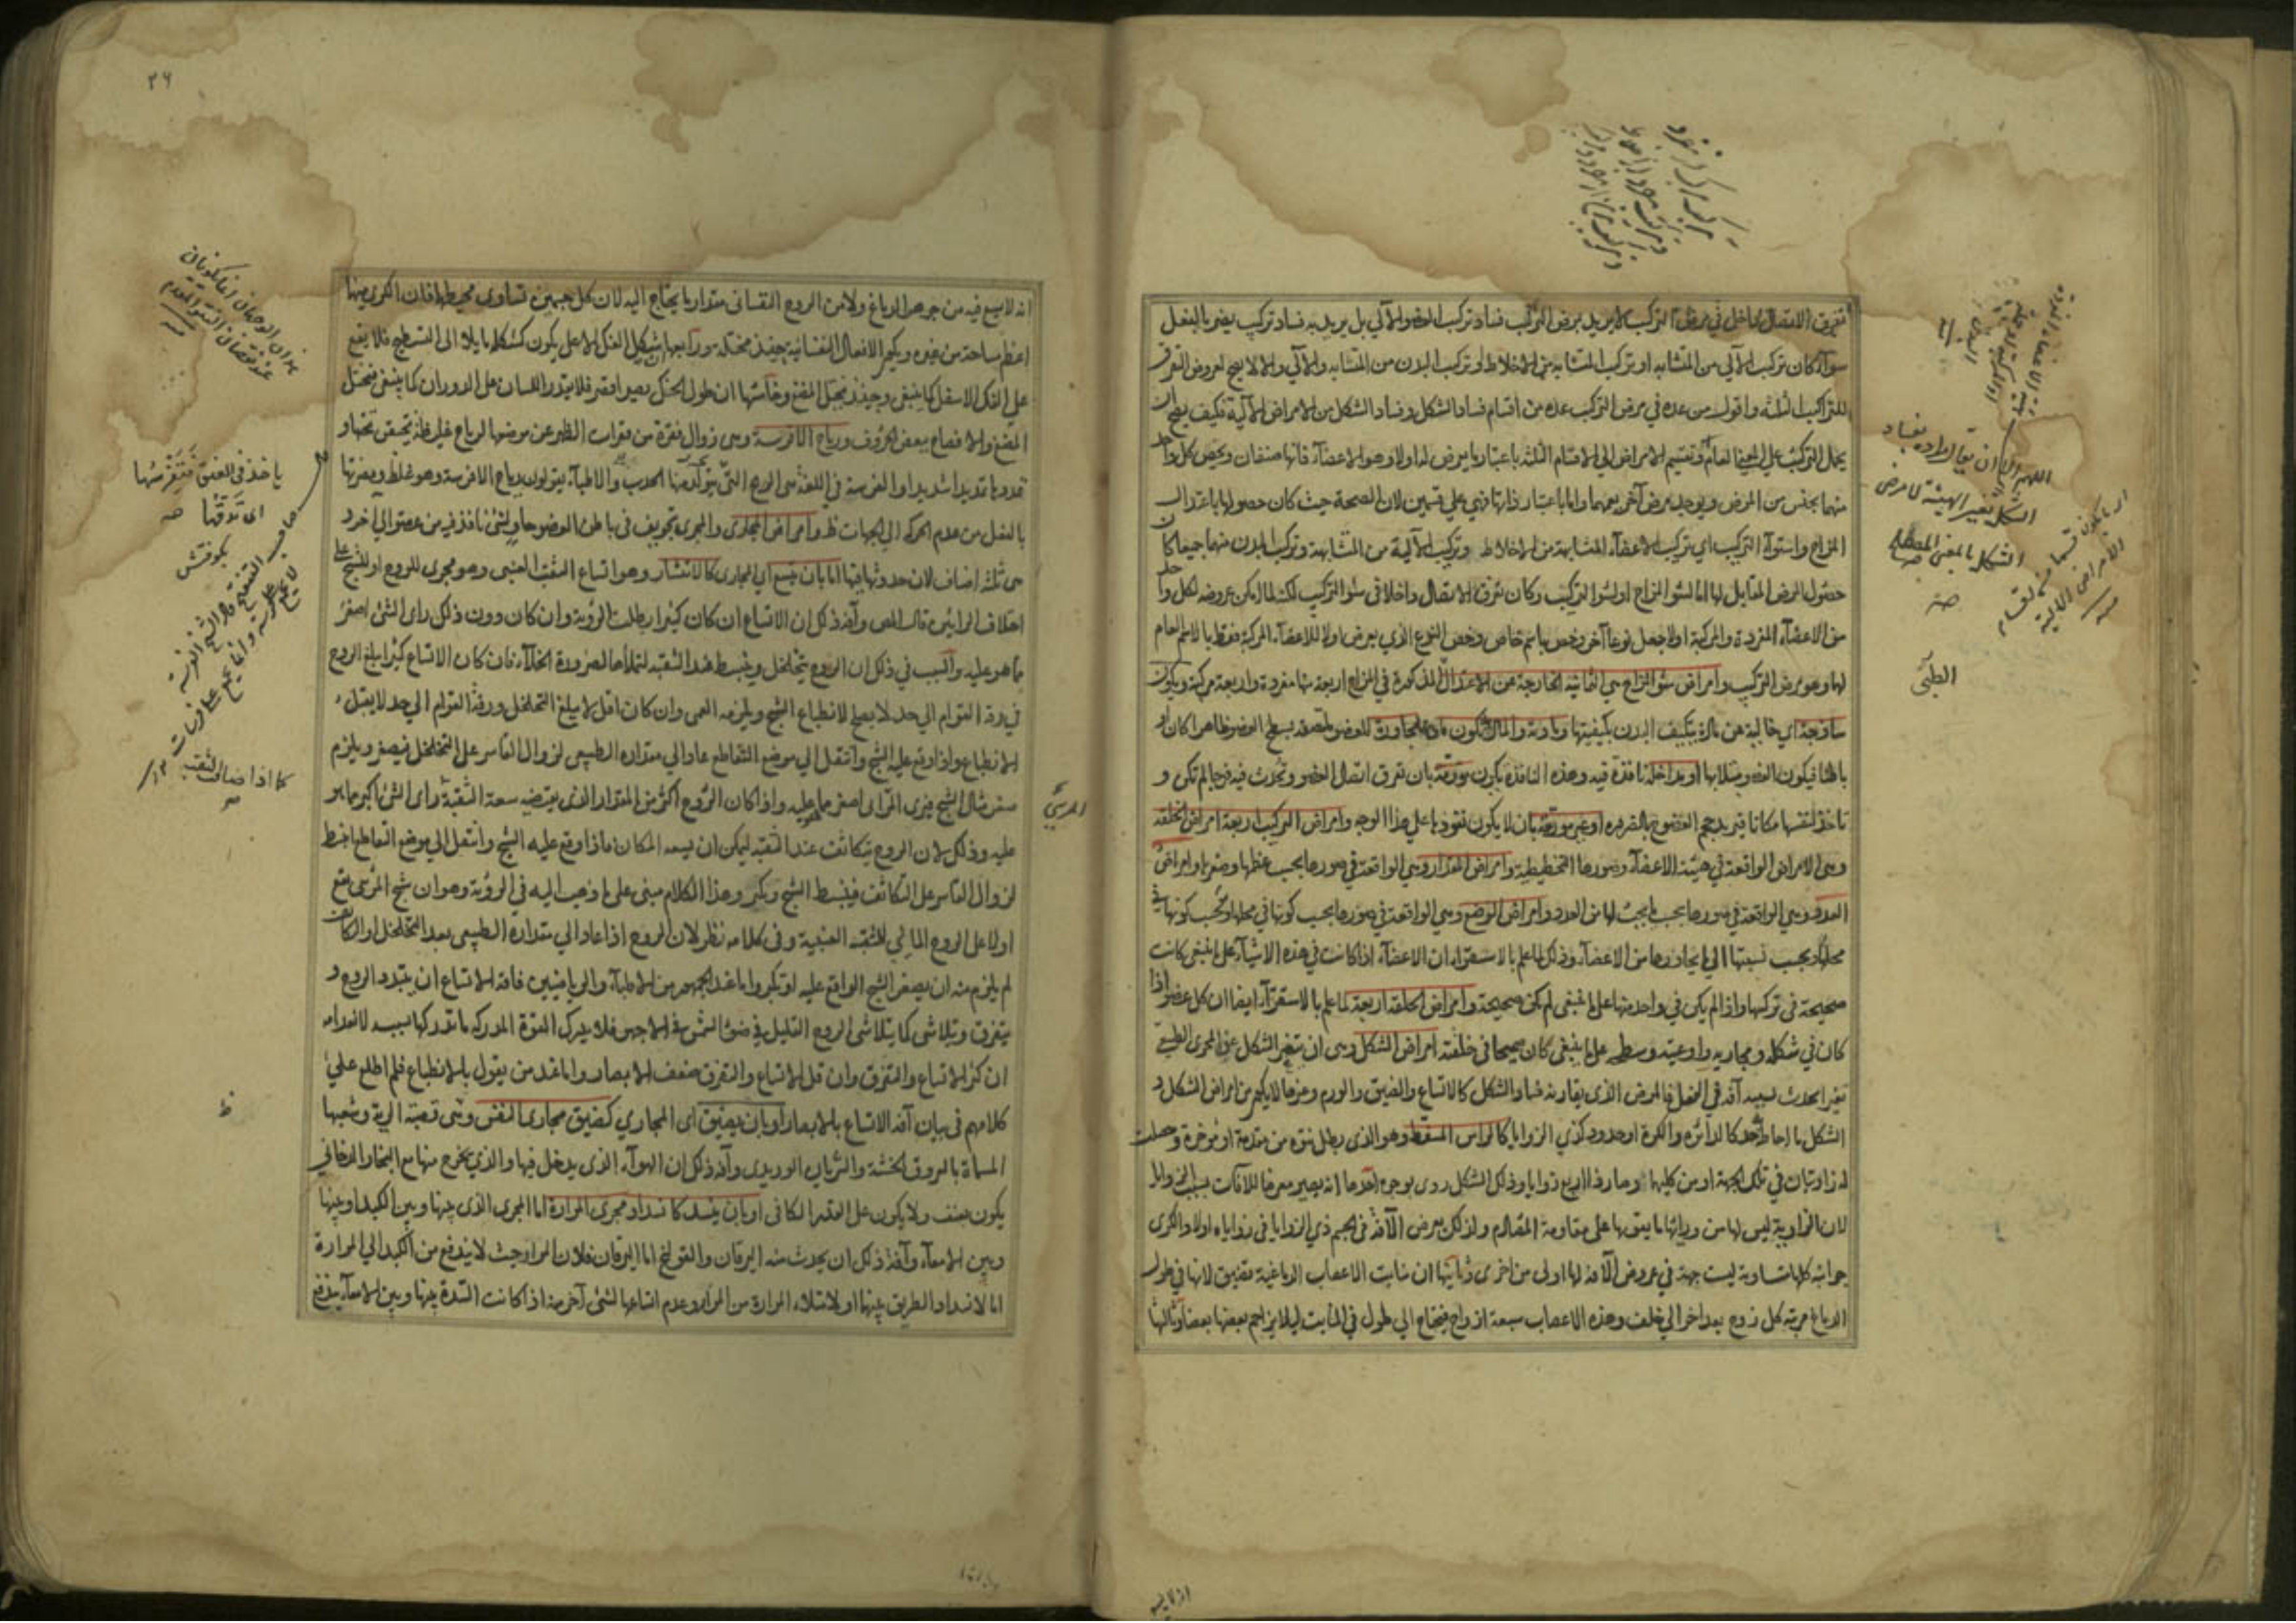 تفرق الاتصال داخل في مرض التركيب لا يريد بمرض التركيب فساد تركيب العضو الآلي بل يريد به فساد تركيب يضر بالفعل
سوآء كان تركيب الآلي من المتشابه او تركيب المتشابه من الاخلاط او تركيب البدن من المتشابه والآلي والا لا يصح لعروض التفرق
للتراكيب الثلثة واقول من عده في مرض التركيب عده من اقسام فساد الشكل وفساد الشكل من الامراض الآلية فكيف يصح ان
يحمل التركيب علي المعني العام وتقسيم الامراض الي الاقسام الثلثة باعتبار ما يعرض له اولا وهو الاعضآء فانها صنفان ويخص كل واحد
منهما بجنس من المرض ويوجد مرض آخر يعمهما واما باعتبار ذاتها فهي علي قسمين لان الصحة حيث كان حصولها باعتدال
المزاج واستوآء التركيب اي تركيب الاعضآء المتشابهة من الاخلاط وتركيب الآلية من المتشابهة وتركيب البدن منهما جميعا كان
حصول المرض المقابل لها اما لسوء المزاج او لسوء التركيب وكان تفرق الاتصال داخلا في سوء التركيب لكنه لما امكن عروضه لكل واحد
من الاعضآء المفردة والمركبة اولا جعل نوعا آخر وخص باسم خاص وخص النوع الذي يعرض اولا للاعضآء المركبة فقط بالاسم العام
لها وهو مرض التركيب وامراض سوء المزاج هي الثمانية الخارجة عن الاعتدال المذكورة في المزاج اربعة منها مفردة واربعة مركبة ويكون
ساذجة اي خالية عن مادة يتكيف البدن بكيفيتها ومادية والمادة تكون اما مجاورة للعضو ملتصقة بسطح العضو ظاهرا كان او
باطنا فيكون العضو مبتلا بها او مداخلة نافذة فيه وهذه النافذة يكون مورمة بان تفرق اتصال العضو وتحدث فيه فرجا لم تكن و
تاخذ لنفسها مكانا فيزيد حجم العضو بالضرورة او غير مورمة بان لا يكون نفوذها علي هذا الوجه وامراض التركيب اربعة امراض الخلقة
وهي الامراض الواقعة في هيئة الاعضآء وصورها التخطيطية وامراض المقدار وهي الواقعة في صورها بحسب عظمها وصغرها وامراض
العدد وهي الواقعة في صورها بحسب ما يجب لها من العدد وامراض الوضع وهي الواقعة في صورها بحسب كونها في محلها او بحسب كونها في
محلها وبحسب نسبتها الي ما يجاورها من الاعضآء وذلك لما علم بالاستقرآء ان الاعضآء اذا كانت في هذه الاشيآء علي ما ينبغي كانت
صحيحة في تركيبها واذا لم يكن في واحد منها علي ما ينبغي لم تكن صحيحة وامراض الخلقة اربعة لما علم بالاستقرآء ايضا ان كل عضو اذا
كان في شكله ومجاريه واوعيته وسطحه علي ما ينبغي كان صحيحا في خلقته امراض الشكل وهي ان يتغير الشكل عن المجري الطبيعي
تغيرا يحدث بسببه آفة في الفعل فالمرض الذي يقارنه فساد الشكل كالاتساع والضيق والورم وغيرها لا يكون من امراض الشكل و
الشكل ما احاط به حد كالدائرة والكرة او حدود كذي الزوايا كالراس المسفط وهو الذي بطل نتوه من مقدمة او موخره وحصلت
له زاويتان في تلك الجهة او من كليهما وصار ذا اربع زوايا وذلك الشكل ردي بوجوه احدها انه يصير معرضا للآفات بسبب الزوايا
لان الزاوية ليس لها من ورائها ما يقويها علي مقاومة المقادم ولذلك يعرض الآفة في الجسم ذي الزوايا في زواياه اولا والكري
جوانبه كلها متساوية ليست جهة في عروض الآفة لها اولى من اخرى وثانيها ان منابت الاعصاب الدماغية تضيق لانها في طول
الدماغ مرتبة كل زوج بعد اخر الي خلف وهذه الاعصاب سبعة ازواج فيحتاج الي طول في المنابت ليلا يزاحم بعضها بعضا وثالثها
اللهم الا ان يقال المراد بفساد
الشكل تغير الهيئة لا مرض
الشكل بالمعني المصطلح
الطبّي
٢٦
انه لا يسع فيه من جوهر الدماغ ولا من الروح النفساني مقدار ما يحتاج اليه لان كل جسمين تساوى محيطهما فان الكري منهما
اعظم مساحة من غيره ويكون الافعال النفسانية حينئذ مختلة ورابعها ان شكل الفك الاعلي يكون كشكله مايلا الى التسطيح فلا يقع
علي الفك الاسفل كما ينبغي وحينئذ يختل المضغ وخامسها ان طول الحنك يصير اقصر فلا يقدر اللسان علي الدوران كما ينبغي فيختل
المضغ والافصاح ببعض الحروف ورياح الافرسة وهي زوال فقرة من فقرات الظهر عن موضعها لرياح غليظة تحتقن تحتها و
تمددها تمديدا شديدا والفرسة في اللغة هي الريح التي يتولد منها الحدب والاطبآء يقولون رياح الافرسة وهو غلط ويضرتها
بالفعل من عدم الحركة الي الجهات ظ وامراض المجاري والمجرى تجويف في باطن العضو حاو لشئ نافذ فيه من عضو الي اخر و
هي ثلثة اصناف لان حدوثها فيها اما بان يتسع اي المجارى كالانتشار وهو اتساع الثقب العنبى وهو مجرى للروح او للشبح علي
اختلاف الرايين قال المص وآفة ذلك ان الاتساع ان كان كثيرا بطلت الرؤية وان كان دون ذلك راى الشئ اصغر
مما هو عليه والسبب في ذلك ان الروح يتخلخل وينبسط عند الثقبة لتملأها لضرورة الخلآء فان كان الاتساع كثيرا بلغ الروح
في رقة القوام الي حد لا يصلح لانطباع الشبح ويلزمه العمى وان كان اقل لا يبلغ التخلخل ورقة القوام الي حد لا يقبل
الانطباع واذا وقع عليه الشبح وانتقل الي موضع التقاطع عاد الي مقداره الطبيعى لزوال القاسر علي التخلخل فيصغر ويلزم
صغر مثال الشبح فيرى المرآى اصغر مما هو عليه واذا كان الروح اكثر من المقدار الذى يقتضيه سعة الثقبة راى الشئ اكبر مما هو
عليه وذلك لان الروح يتكاثف عند الثقبة ليمكن ان يسعه المكان فاذا وقع عليه الشبح وانتقل الي موضع التقاطع انبسط
لزوال القاسر علي التكاثف فينبسط الشبح ويكبر وهذا الكلام مبنى على ما ذهب اليه في الرؤية وهو ان شبح المرئى يقع
اولا على الروح المالي للثقبة العنبية وفى كلامه نظر لان الروح اذا عاد الي مقداره الطبيعى بعد التخلخل او التكاثف
لم يلزم منه ان يصغر الشبح الواقع عليه او يكبر واما عند الجمهور من الاطبآء والرياضيين فآفة الاتساع ان يتبدد الروح و
يتفرق ويتلاشى كما يتلاشى الروح القليل في ضوء الشمس في الاجهر فلا يدرك القوة المدركة ما تدركها بسببه لانعدامه
ان كثر الاتساع والتفرق وان قل الاتساع والتفرق ضعف الابصار واما عند من يقول بالانطباع فلم اطلع علي
كلامهم في بيان آفة الاتساع بالابصار او بان يضيق اى المجاري كضيق مجارى النفس وهى قصبة الرية وشعبها
المسماة بالعروق الخشنة والشريان الوريدى وآفة ذلك ان الهوآء الذى يدخل فيها والذي يخرج منها مع البخار الدخاني
يكون بعنف ولا يكون علي القدر الكافي او بان ينسد كانسداد مجرى المرارة اما المجرى الذى بينها وبين الكبد او بينها
وبين الامعآء وآفة ذلك ان يحدث منه اليرقان والقولنج اما اليرقان فلان المرار حيث لا يندفع من الكبد الي المرارة
اما لانسداد الطريق بينهما او لامتلاء المرارة من المرار وعدم اتساعها لشئ آخر منه اذا كانت السدة بينها وبين الامعآء يندفع
ياخذ في العنق فتفرسها
اى تدقها
كما اذا ضاق الثقب